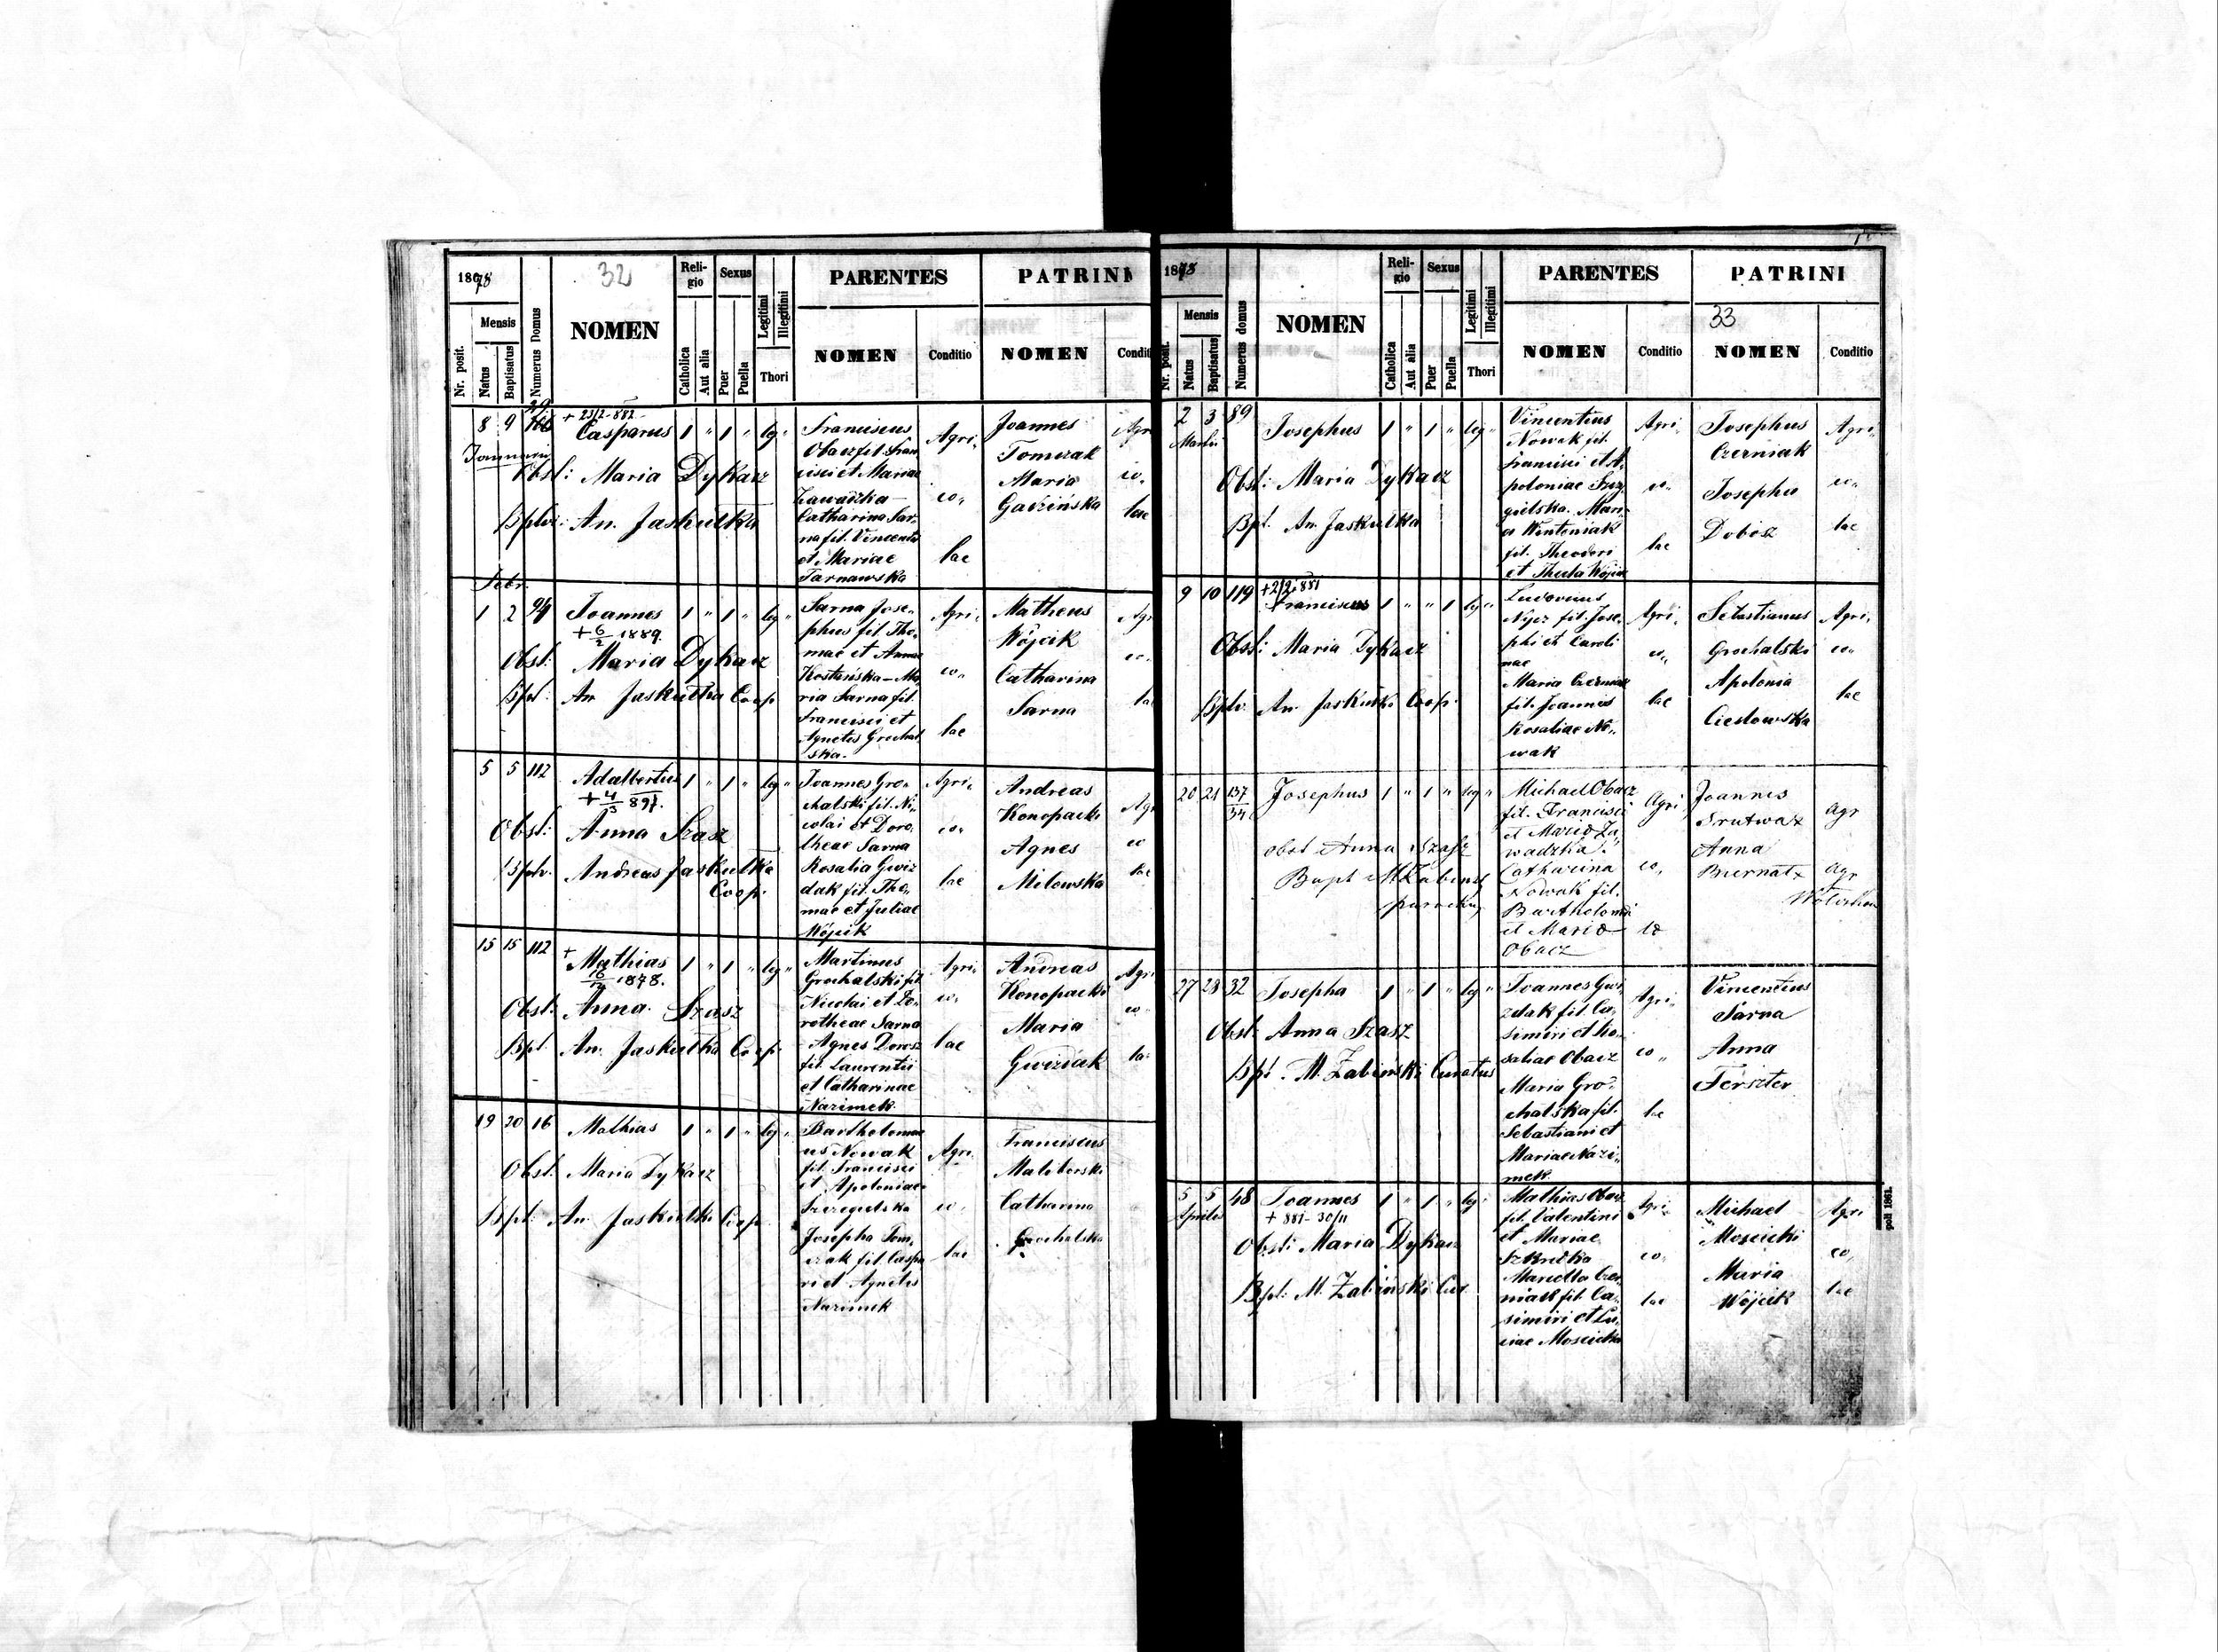 1878
32
Religio
Sexus
Legitimi
Illegitimi
PARENTES
PATRINI
Mensis
Nr. posit.
Natus
Baptisatus
Numerus Domus
NOMEN
Catholica
Aut alia
Puer
Puella
Thori
NOMEN
Conditio
NOMEN
Condit
8 9 + 23/2 - 882 -
Januarii
Casparus 1 " 1 " leg "
Obst: Maria Dykacz
Bptvi: An. Jaskulka
Franciscus
Obacz fil. Fran
cisci et Mariae
Zawadzka -
Catharina Sar-
na fil. Vincenti
et Mariae
Tarnawska
Agri-
co-
lae
Joannes
Tomczak
Maria
Agri
co.
lae
Febr.
1 2 94 Joannes 1 " 1 " leg "
+ 6/2 1889.
Obst: Maria Dykacz
Bpt: An Jaskulka Coop
Sarna Jose-
phus fil. Tho-
mae et Annae
Kostińska - Ma
ria Sarna fil.
Francisci et
Agnetis Grochal
ska.
Agri-
co-
lae
Matheus
Wójcik
Catharina
Sarna
Agr
co.
la
5 5 112 Adalbertus 1 " 1 " leg "
+ 4/3 897.
Obst: Anna Szasz
Bptv. Andreas Jaskulka
Coop.
Joannes Gro-
chalski fil. Ni-
colai et Doro-
theae Sarna
Rosalia Gwiz
dak fil. Tho-
mae et Juliae
Wójcik
Agri-
co-
lae
Andreas
Konopacki
Agnes
Milowska
Agr
co
lae
15 15 112 + Mathias 1 " 1 " leg "
1878.
Obst: Anna Szasz
Bpt. An. Jaskulka Coop
Martinus
Grochalski fil
Nicolai et Do-
rotheae Sarna
- Agnes Dorosz
fil. Laurentii
et Catharinae
Nazimek
Agri-
co-
lae
Andreas
Konopacki
Maria
Gwizdak
Agri
co-
la
19 20 16 Mathias 1 " 1 " leg "
Obst. Maria Dykacz
Bpt: An. Jaskulka Coop.
Bartholomae
us Nowak
fil. Francisci
et Apoloniae
Szczygielska
Josepha Tom-
czak fil. Caspa
ri et Agnetis
Nazimek
Agri.
co-
lae
Franciscus
Catharina
Grochalska
1878
Religio
Sexus
Legitimi
Illegitimi
PARENTES
PATRINI
Mensis
Nr. posit.
Natus
Baptisatus
Numerus domus
NOMEN
Catholica
Aut alia
Puer
Puella
Thori
NOMEN
Conditio
33
NOMEN
Conditio
2 3 89 Josephus 1 " 1 " leg "
Martii
Obst: Maria Dykacz
Bpt. An. Jaskulka
Vincentius
Nowak fil.
Francisci et A-
poloniae Szczy
gielska. Mari-
a Wintoniak
fil. Theodori
et Thecla Wójcik
Agri-
co-
lae
Josephus
Czerniak
Josepha
Dobosz
Agri-
co-
lae
9 10 119 + 2/2. 881
Franciscus 1 " " 1 leg "
Obst: Maria Dykacz
Bptv. An. Jaskulka Coop.
Ludovicus
fil. Jose-
phi et Caroli
nae
Maria Czerniak
fil. Joannis
Rosaliae No-
wak
Agri-
co-
lae
Sebastianus
Grochalski
Apolonia
Cieslowska
Agri-
co-
lae
20 21 137/34 Josephus 1 " 1 " leg "
obst Anna Szasz
Bapt M Żabinsk
Michael Obacz
fil. Francisci
et Maria Za-
wadzka.
Catharina
Nowak fil.
Bartholomei
et Maria
Obacz
Agri
co,
Joannes
Srutwa x
Anna
Biernat x
agr
agr
27 28 32 Josepha 1 " 1 " leg "
Obst: Anna Szasz
Bpt. M. Żabiński Curatus
Joannes Gwi-
zdak fil. Ca-
simiri et Ro-
saliae Obacz
Maria Gro-
chalska fil.
Sebastiani et
Mariae Nazi-
mek
Agri-
co-
lae
Vincentius
Sarna
Anna
Ferszter
5 5 48 Joannes 1 " 1 " leg "
Aprilis
+ 881 - 30/11
Obst: Maria Dykacz
Bpt: M. Żabiński Cur
Mathias Obacz
fil. Valentini
et Mariae
Marcella Czer-
niak fil. Ca-
simiri et Lu-
ciae Moscicka
Agri-
co-
lae
Michael
Moscicki
Maria
Wójcik
Agri
co,
lae
poli 1861.